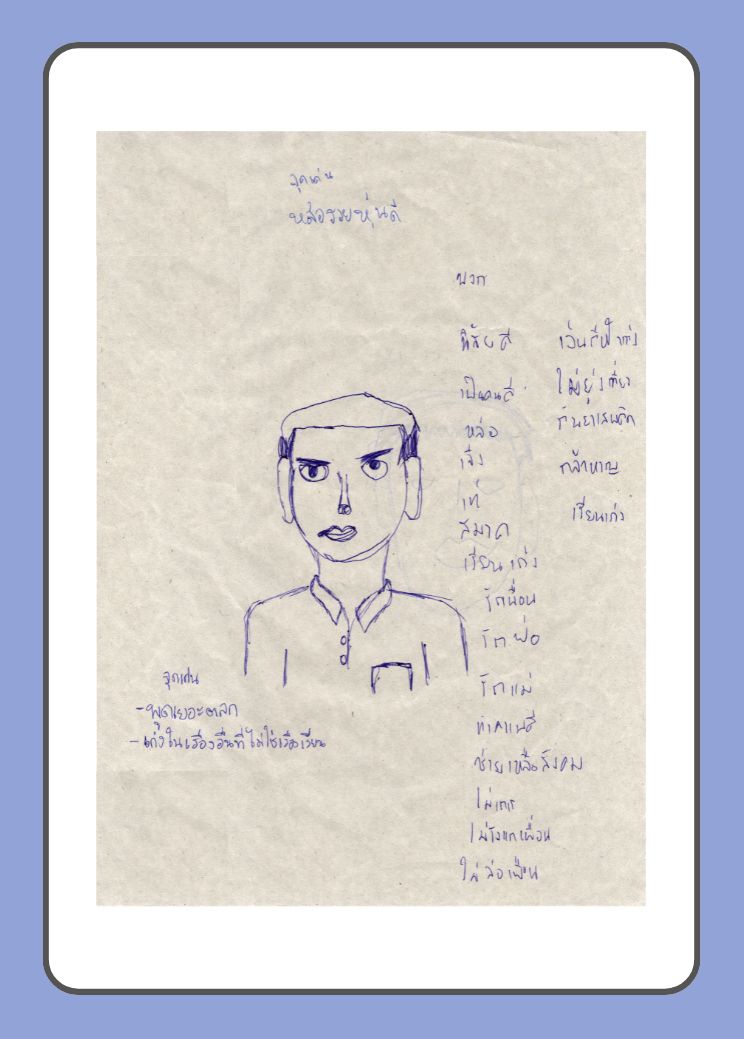 จุดเด่น
หล่อรวยหุ่นดี
บวก
นิสัยดี
เป็นคนดี
หล่อ
เจ๋ง
เท่
สมาด
เรียนเก่ง
รักเพื่อน
รักพ่อ
รักแม่
ช่วยเหลือสังคม
ไม่เกเร
ไม่รังแกเพื่อน
ไม่ล้อเพื่อน
ไม่ยุ่งเกี่ยว
กับยาเสพติด
กล้าหาญ
เรียนเก่ง
จุดเด่น
-พูดเยอะตลก
-เก่งในเรื่องอื่นที่ไม่ใช่เรื่องเรียน